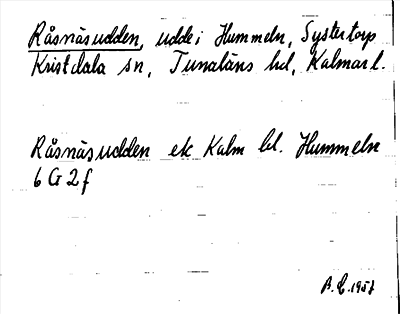 Råsnäsudden, udde i Hummeln, Systertorp
Kristdala sn, Tunaläns hd, Kalmar l.
Råsnäsudden ek Kalm bl. Hummeln
6 G 2 f
A. L. 1957